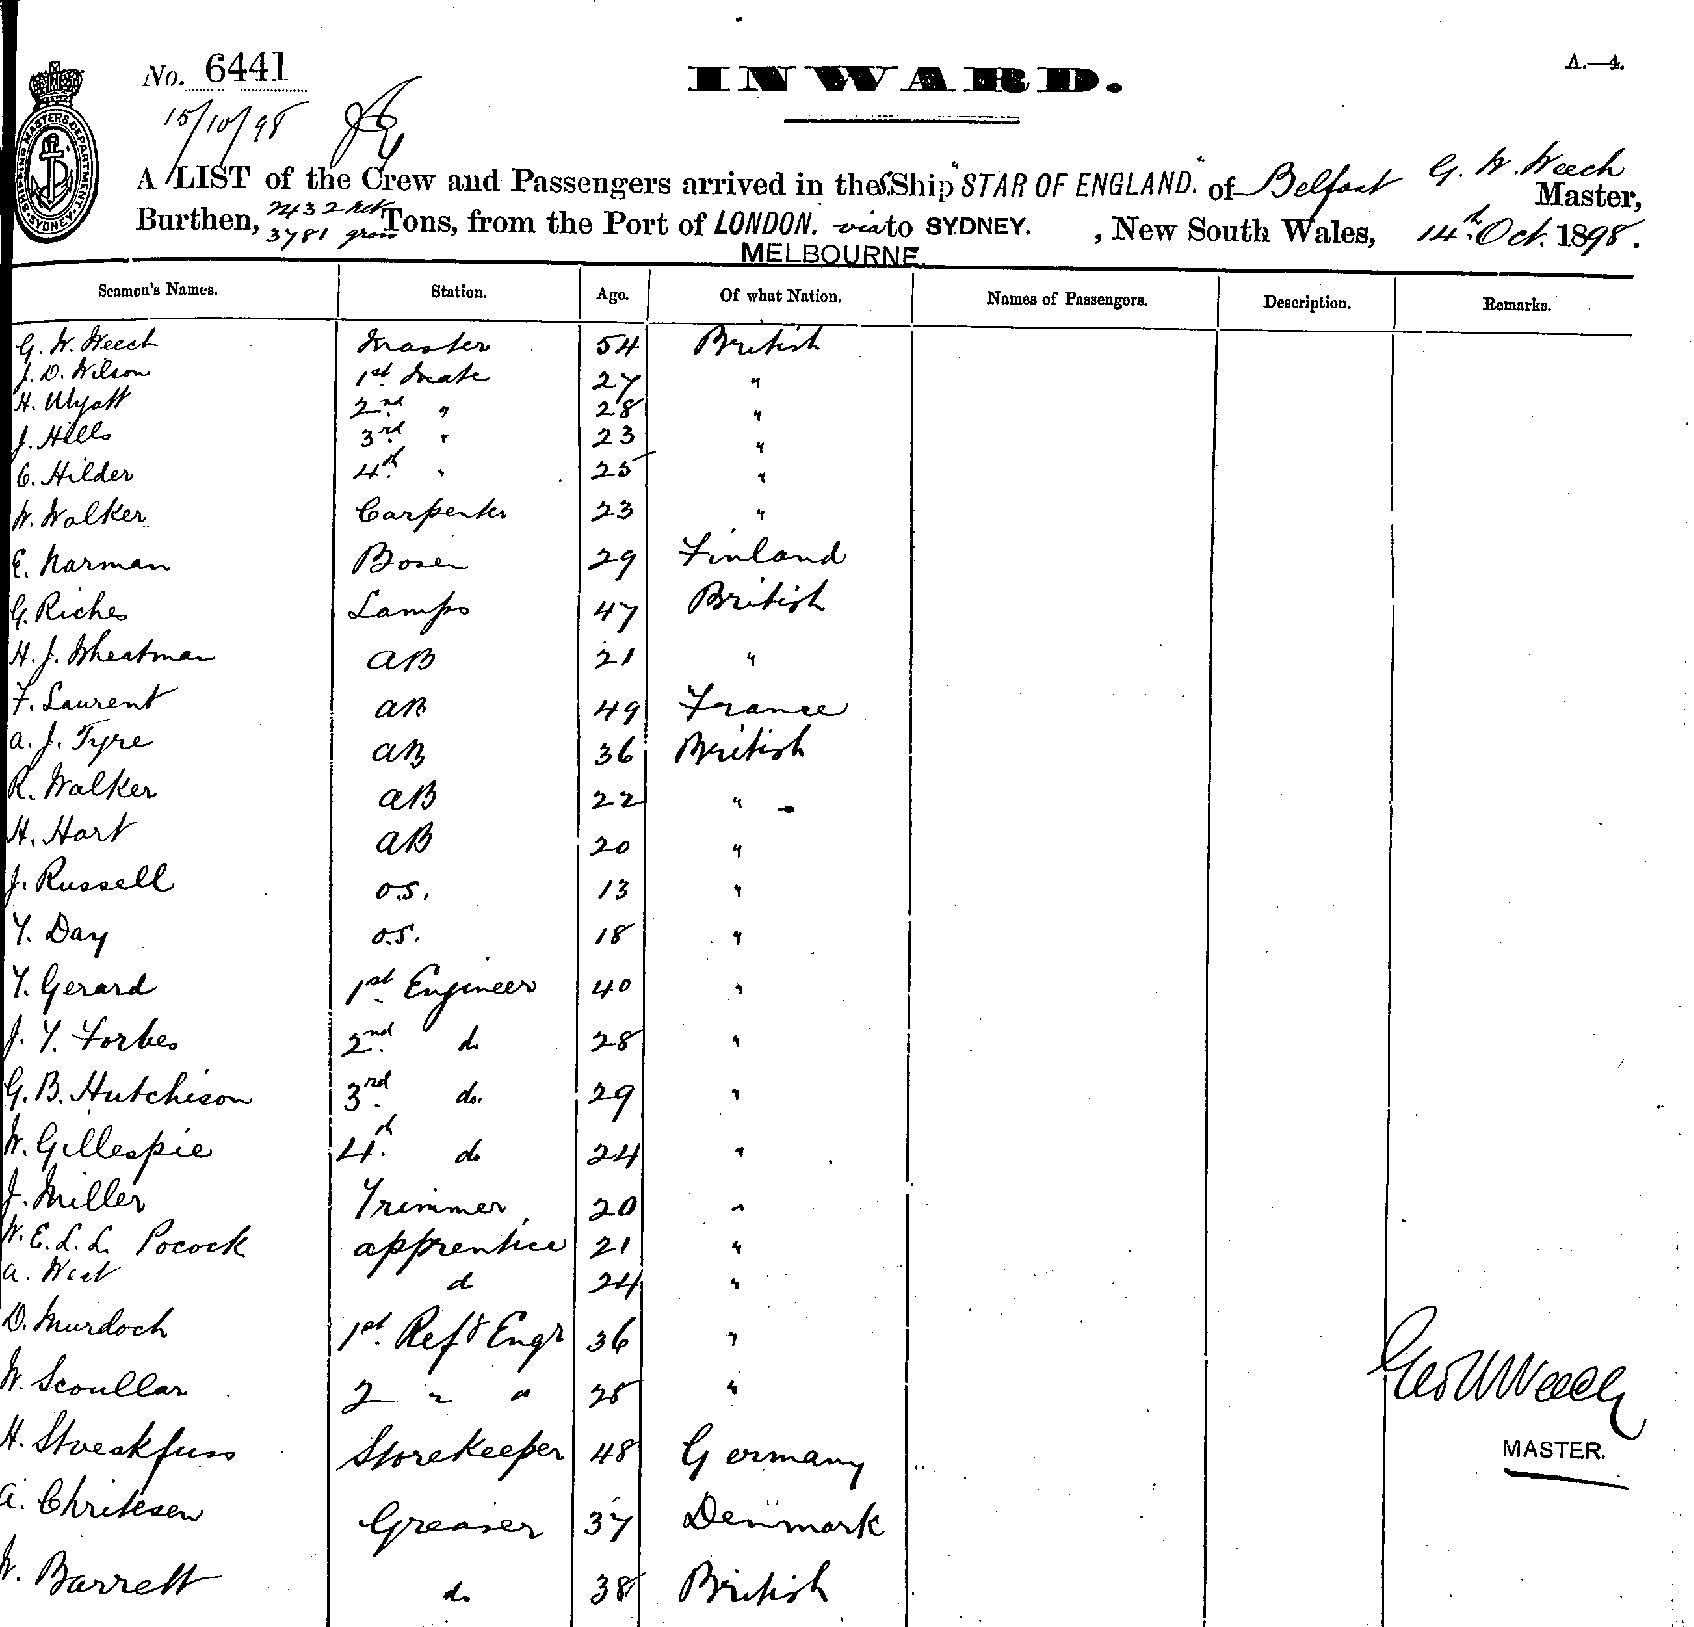 No. 6441
INWARD.
A.—4.
15/10/98
A LIST of the Crew and Passengers arrived in the S.Ship "STAR OF ENGLAND." of Belfast G. W. Weech Master,
Burthen, 2432 net 3781 gross Tons, from the Port of LONDON. via MELBOURNE. to SYDNEY. , New South Wales, 14th Oct. 1898.
Seamen's Names. Station. Age. Of what Nation. Names of Passengers. Description. Remarks.
G. W. Weech Master 54 British
J. D. Wilson 1st Mate 27 "
H. Wyatt 2nd " 28 "
J. Hills 3rd " 23 "
C. Hilder 4th " 25 "
W. Walker Carpenter 23 "
E. Narman Bosen 29 Finland
G. Riches Lamps 47 British
H. J. Wheatman AB 21 "
F. Laurent AB 49 France
A. J. Tyre AB 36 British
R. Walker AB 22 "
H. Hart AB 20 "
J. Russell O.S. 13 "
T. Day O.S. 18 "
T. Gerard 1st Engineer 40 "
J. T. Forbes 2nd do 28 "
G. B. Hutchison 3rd do. 29 "
W. Gillespie 4th do 24 "
J. Miller Trimmer 20 "
W. E. L. L. Pocock apprentice 21 "
A. West do 24 "
D. Murdoch 1st Refr Engr 36 "
W. Scoullar 2 " " 25 "
H. Stoeskfuss Storekeeper 48 Germany
A. Chritesen Greaser 37 Denmark
W. Barrett do 38 British
Geo W Weech
MASTER.